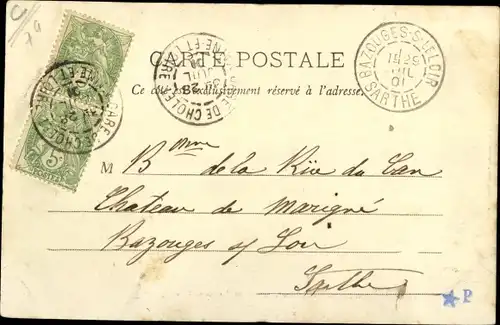 CARTE POSTALE
Ce côté est exclusivement réservé à l'adresse
BAZOUGES-S-LE LOIR
29
JUIL
01
SARTHE
GARE DE CHOLET
MAINE ET LOIRE
POSTES
M Bonne de la Rüe du Can
Chateau de Marigné
Bazouges s/ Loir
Sarthe
P